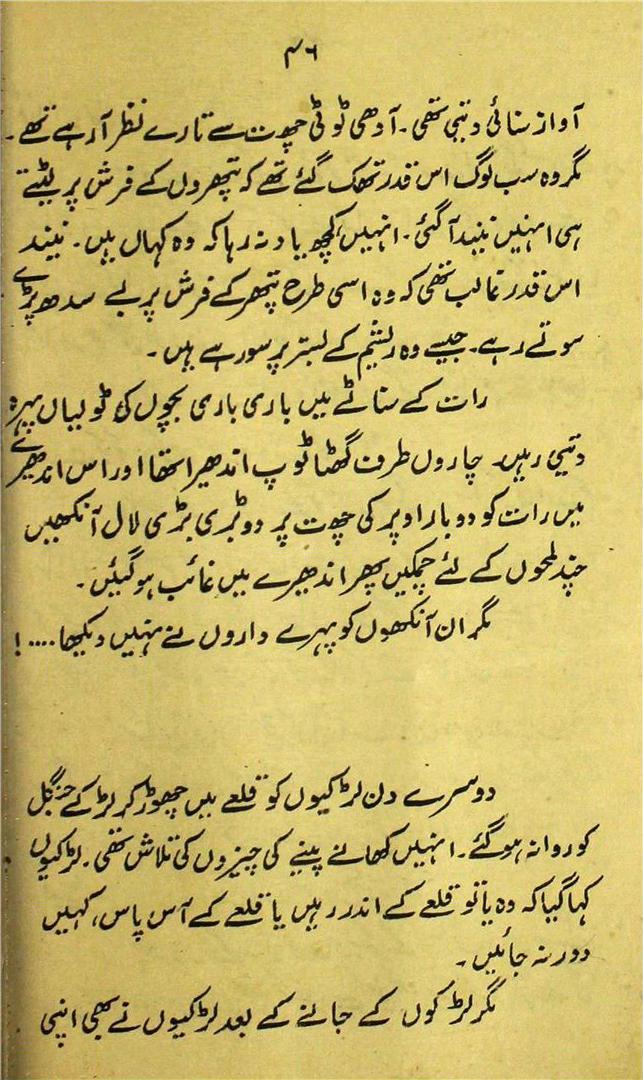 ۴۶
آواز سنائی دیتی تھی۔ آدھی ٹوٹی چھت سے تارے نظر آ رہے تھے۔
مگر وہ سب لوگ اس قدر تھک گئے تھے کہ پتھروں کے فرش پر لیٹتے
ہی انہیں نیند آ گئی۔ انہیں کچھ یاد نہ رہا کہ وہ کہاں ہیں۔ نیند
اس قدر غالب تھی کہ وہ اسی طرح پتھر کے فرش پر بے سدھ پڑے
سوتے رہے۔ جیسے وہ ریشم کے بستر پر سو رہے ہیں۔
رات کے سناٹے میں باری باری بچوں کی ٹولیاں پہرہ
دیتی رہیں۔ چاروں طرف گھٹا ٹوپ اندھیرا تھا اور اس اندھیرے
میں رات کو دو بار اوپر کی چھت پر دو بڑی بڑی لال آنکھیں
چند لمحوں کے لئے چمکیں پھر اندھیرے میں غائب ہو گئیں۔
مگر ان آنکھوں کو پہرے داروں نے نہیں دیکھا....!
دوسرے دن لڑکیوں کو قلعے میں چھوڑ کر لڑکے جنگل
کو روانہ ہو گئے۔ انہیں کھانے پینے کی چیزوں کی تلاش تھی۔ لڑکیوں
کہا گیا کہ وہ یا تو قلعے کے اندر رہیں یا قلعے کے آس پاس، کہیں
دور نہ جائیں۔
مگر لڑکوں کے جانے کے بعد لڑکیوں نے بھی اپنی